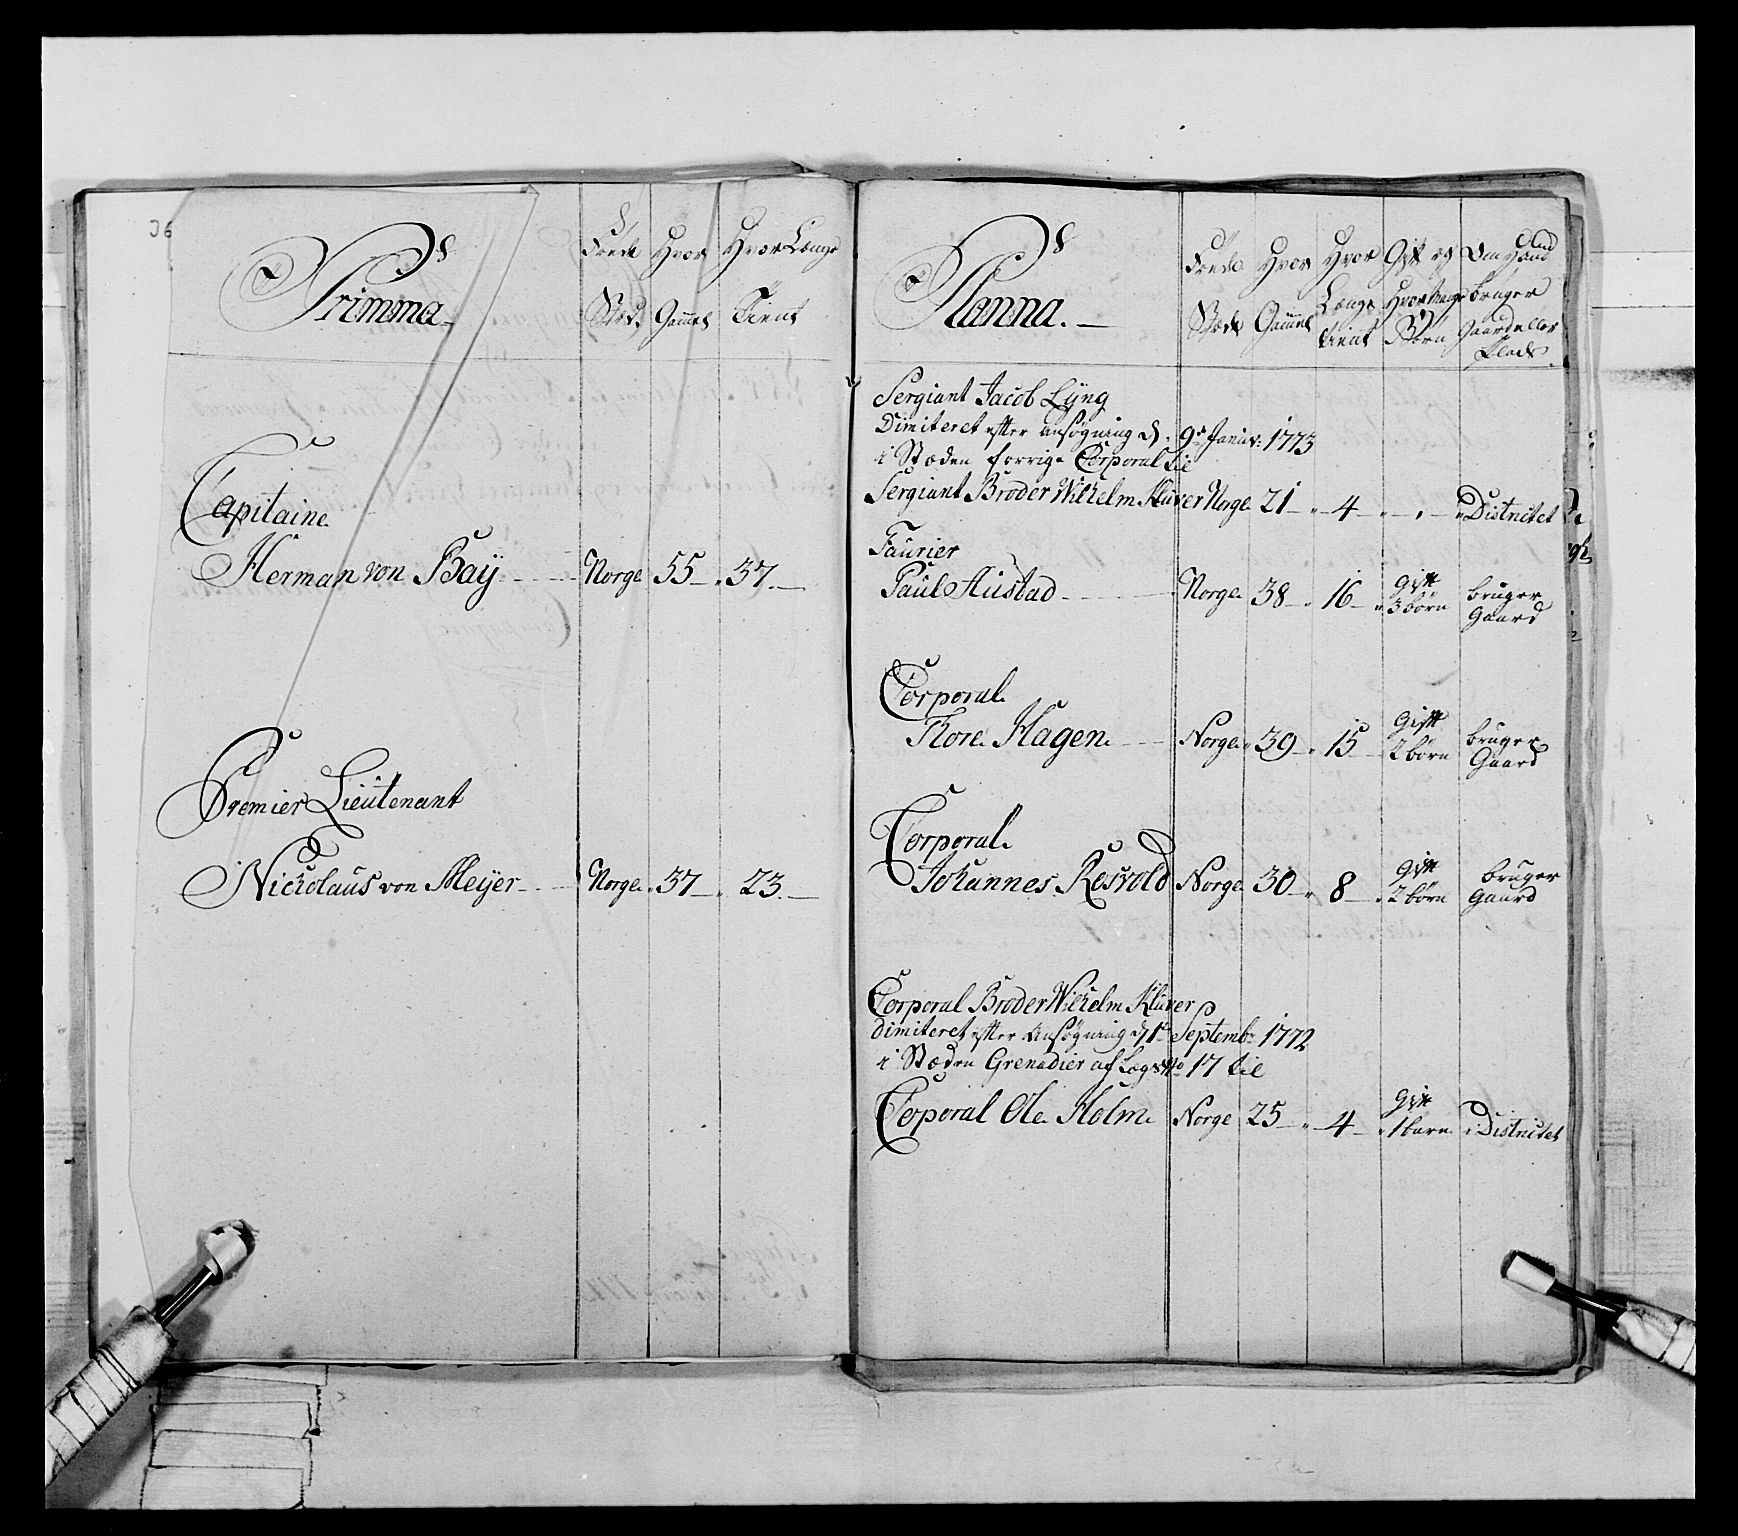 36
Prima
Føede Stæd.
Hvor Gammel
Hvor Længe Tient
Capitaine
Herman von Baÿ Norge 55 37.
Premier Lieutenant
Nickolaus von Meÿer Norge 37 23.
Plana.
Føede Stæd
Hvor Gammel
Hvor Længe tient
Gift og Hvor Mange Børn
Om Hand bruger Gaard eller Plads.
Sergiant Jacob Lÿng
Dimiteret efter ansøgning d. 9de Janiv: 1773
i Stæden forrige Corporal til
Sergiant Broder Wilhelm Klüver Norge 21 4 Districtet
Faurier
Paul Aüstad Norge 38 16 gift 3 børn bruger Gaard
Corporal.
Thore Hagen Norge 39 15 Gift 2 børn bruger Gaard
Corporal.
Johannes Rosvold Norge 30 8 Gift 2 børn bruger Gaard
Corporal Broder Wilhelm Klüver
dimiteret efter Ansøgning d. 1te Septembr 1772
i Stæden Grenadier af Lægs No 17 til
Corporal Ole Holm Norge 25 4 Gift 1 barn i Districtet